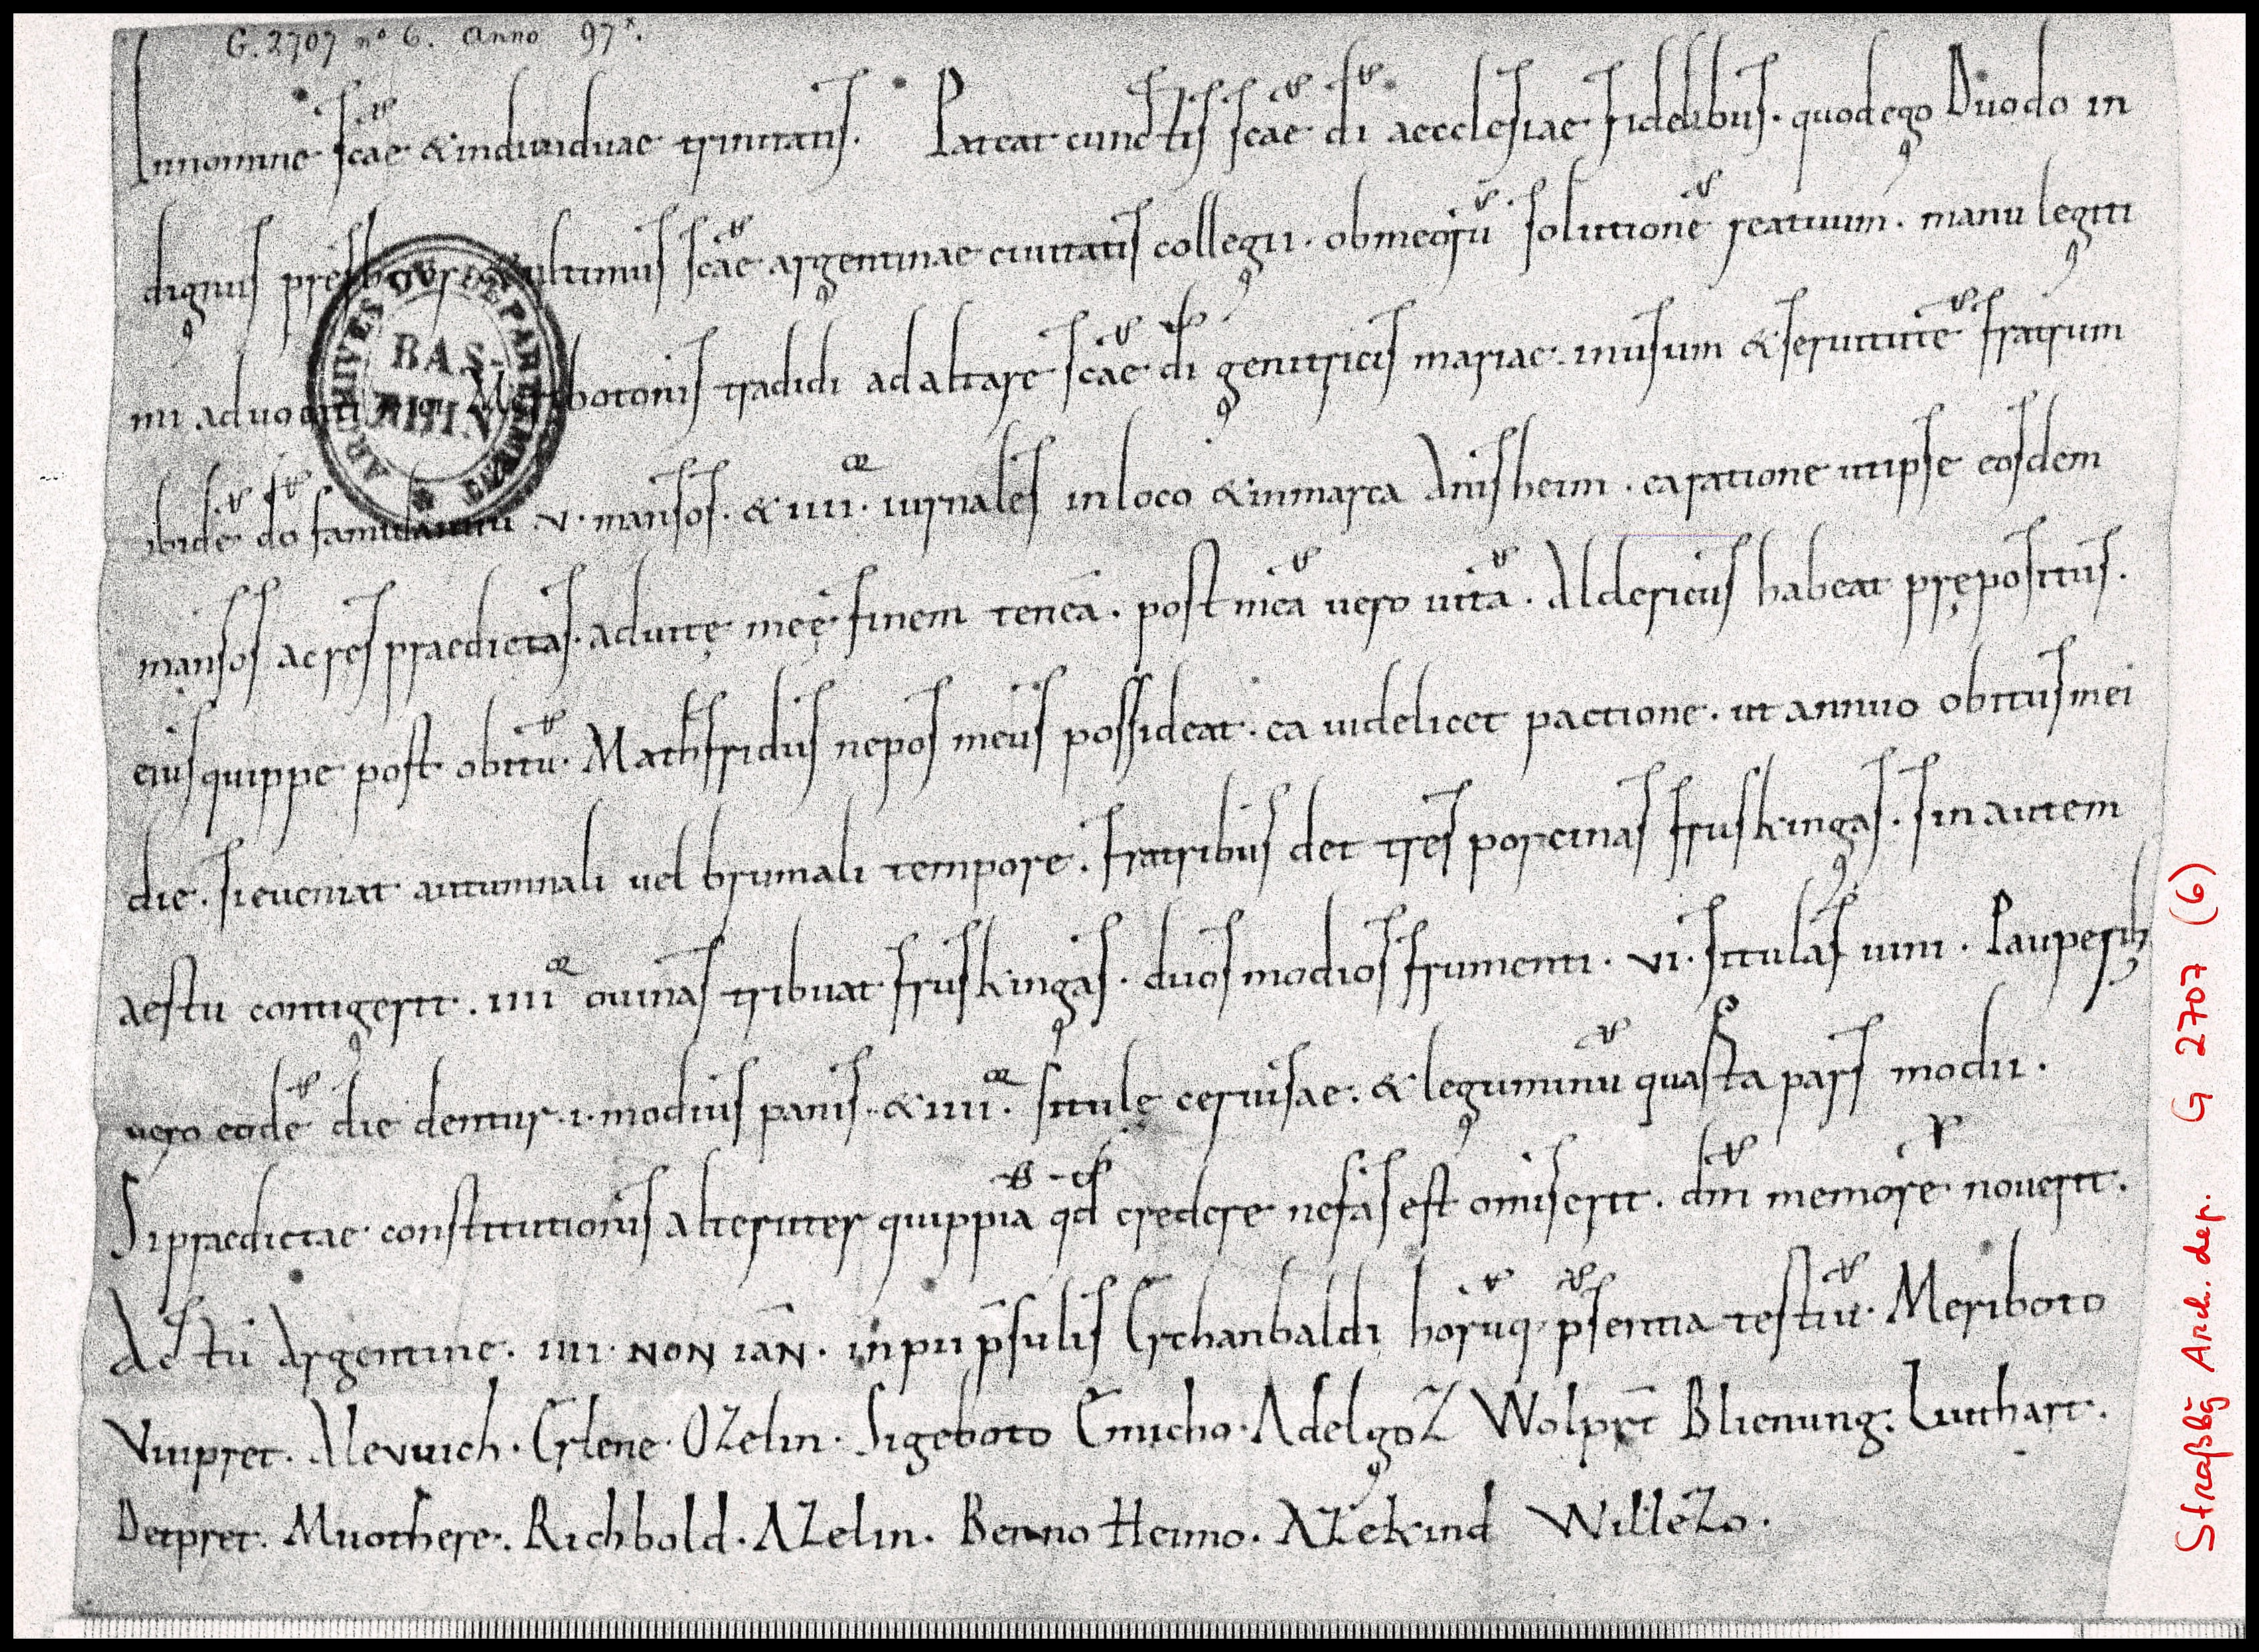 G. 2707 nº 6. Anno 97x.
In nomine scae & individuae trinitatis. Pateat cunctis scae di aecclesiae fidelibus. quod ego Duodo in
dignus presbyter & ultimus scae argentinae civitatis collegii. ob meorū solutionē reatuum. manu legiti
mi advocati Meribotonis tradidi ad altare scae di genitricis mariae. in usum & servitutē fratrum
ibidē dō famulantiū .v. mansos. & iiii. iurnales in loco & in marca Anisheim. ea ratione ut ipse eosdem
mansos ac res praedictas. ad vitę meę finem teneā. post meā vero vitā. Aldericus habeat prępositus.
eius quippe post obitū. Mathfridus nepos meus possideat. ea videlicet pactione. ut annuo obitus mei
die. si eveniat autumnali vel brumali tempore. fratribus det tres porcinas friskingas. sin autem
aestu contigerit. iiii ovinas tribuat friskingas. duos modios frumenti. vi. situlas vini. Pauperib;
vero eodē die dentur .i. modius panis. & iiii. situlę cervisae. & leguminū quarta pars modii.
Si praedictae constitutionis alteruter quippiā qd credere nefas est omiserit. dm memorē noverit.
Actū Argentine. iiii. NON IAN. in pū p̄sulis Erchanbaldi horūq. p̄sentia testiū. Meriboto
Vuipret. Alevuich. Erlene. OZelin. Sigeboto Emicho. AdelgoZ Wolpret Blienung. Luthart.
Detpret. Muothere. Richbold. AZelin. Benno Heimo. AZekind WilleZo.
ARCHIVES DU DÉPARTEMENT
BAS-
RHIN
Straßbg Arch. dep. G 2707 (6)